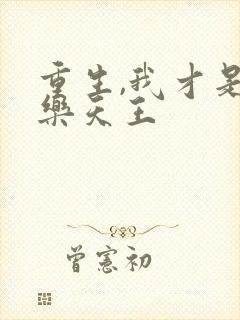 重生,我才是
樂天王
曾憲初